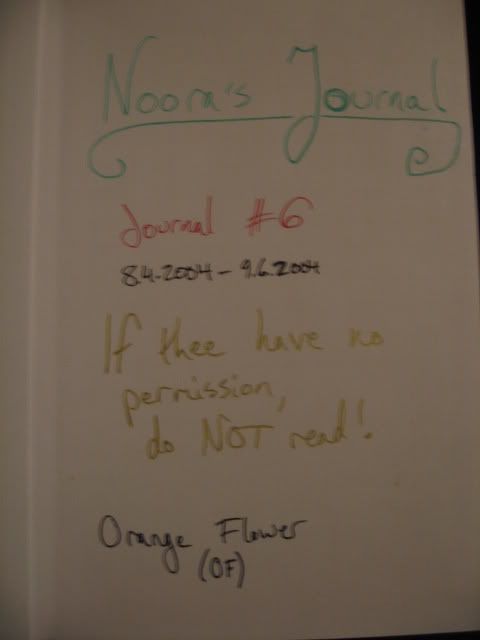 Noora's Journal
Journal #6
8.4.2004 – 9.6.2004
If thee have no
permission,
do NOT read!
Orange Flower
(OF)